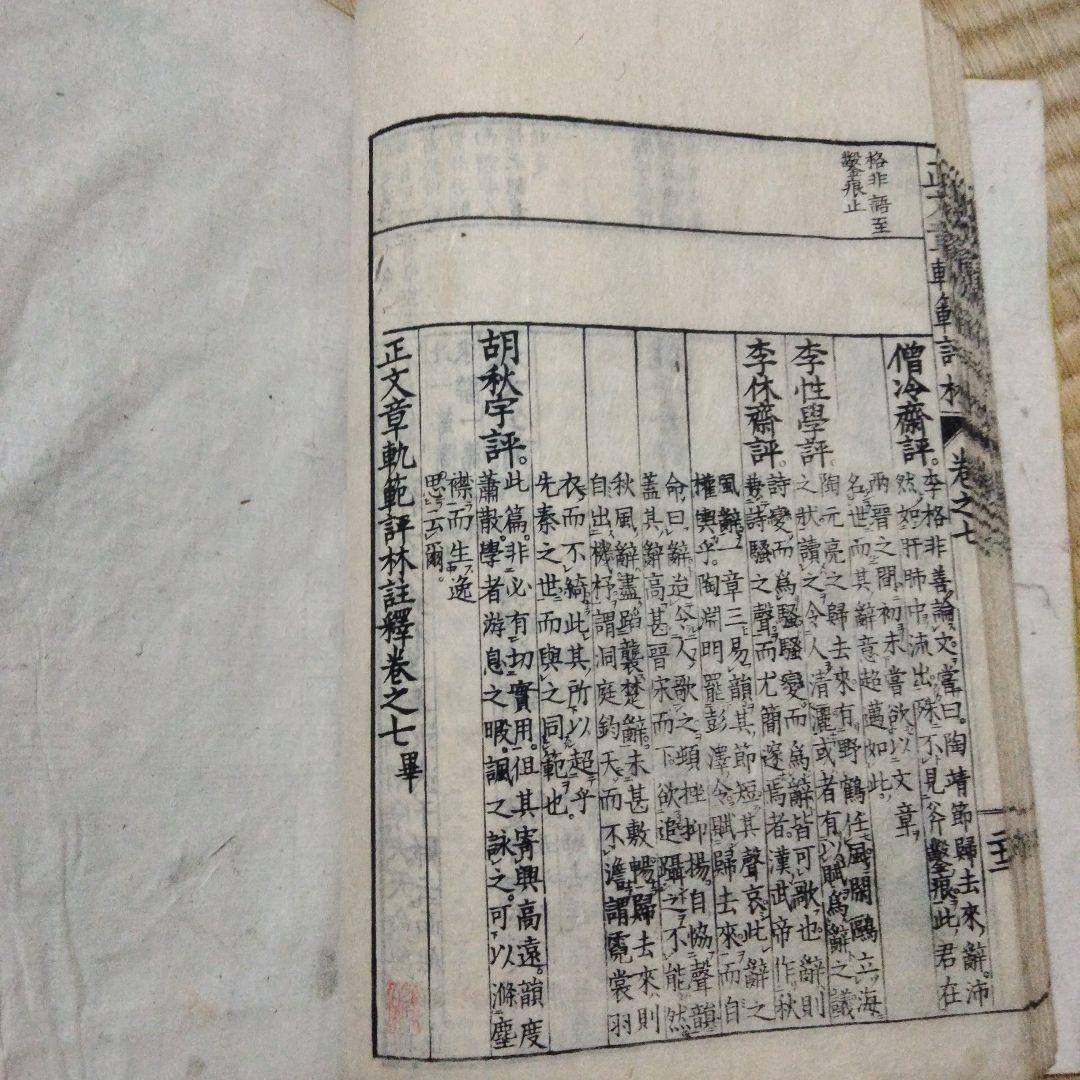 正文章軌範評林
卷之七
二十二
格非語至
鑿痕止
僧冷齋評。李格非善論文。嘗曰。陶靖節歸去來辭。沛
然如肝肺中流出。殊不見斧鑿痕。此君在
兩晋之間。初未嘗欲以文章
名世。而其辭意超邁如此。
李性學評。陶元亮之歸去來。有野鶴任風。閑鷗立海
之狀。讀之令人清灑。或者有以賦爲辭之議
李休齋評。詩變而爲騷。騷變而爲辭。皆可歌也。辭則
兼詩騷之聲。而尤簡邃焉者。漢武帝作秋
風辭。一章三易韻。其節短。其聲哀。此辭之
權輿乎。陶淵明罷彭澤令。賦歸去來。而自
命曰辭。迨令人歌之。頓挫抑揚。自恊聲韻
蓋其辭高甚。晋宋而下。欲追躡之不能。然
秋風辭盡蹈襲楚辭。未甚敷暢。歸去來則
自出機杼。謂洞庭鈞天而不澹。謂霓裳羽
衣而不綺。此其所以超乎
先秦之世。而與之同範也。
胡秋宇評。此篇。非必有切實用。但其寄興高遠。韻度
蕭散。學者游息之暇。諷之詠之。可以滌塵
襟而生逸
思云爾。
正文章軌範評林註釋卷之七畢